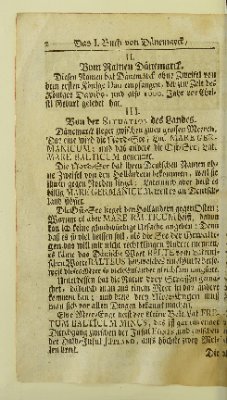 2 Das I. Buch von Dänemarck,
II.
Vom Namen Dänemarck.
Diesen Namen hat Dänemarck ohne Zweifel von
dem ersten Könige Dan empfangen, der zur Zeit des
Königes Davids, und also 1000. Jahr vor Chri-
sti Geburt gelebet hat.
III.
Von der SITUATION des Landes.
Dänemarck lieget zwischen zween grossen Meeren,
Das eine wird die Nord-See, Lat. MARE GER-
MANICUM; und das andere die Ost-See, Lat.
MARE BALTICUM genennet.
Die Nord-See hat ihren Deutschen Namen oh-
ne Zweifel von den Holländern bekommen, weil sie
ihnen gegen Norden lieget: Lateinisch aber heist es
billig MARE GERMANICUM, weil es an Deutsch-
land stösset.
Die Ost-See lieget den Holländern gegen Osten;
Warum es aber MARE BALTICUM heist, davon
kan ich keine Ursache angeben: Denn
daß es so viel heissen soll, als die See der
das will mir nicht recht
es käme das Dänische Wort BELTE vom Lateini-
schen Worte BALTEUS her, welches ein
weil dieses Meer so viele Insulen gleichsam umgiebet.
Unterdessen hat die Natur drey Strassen gema-
chet, dadurch man aus einem Meer in das andere
kommen kan; und diese drey Meer-Engen muß
man sich
Eine Meer-Enge heist der kleine Belt, Lat. FRE-
TUM BALTICUM MINUS, das ist
Durchgang zwischen der Insul FÜNEN, und zwischen
der Halb-Insul JÜTLAND, aufs höchste zwey Mei-
len breit.
Die